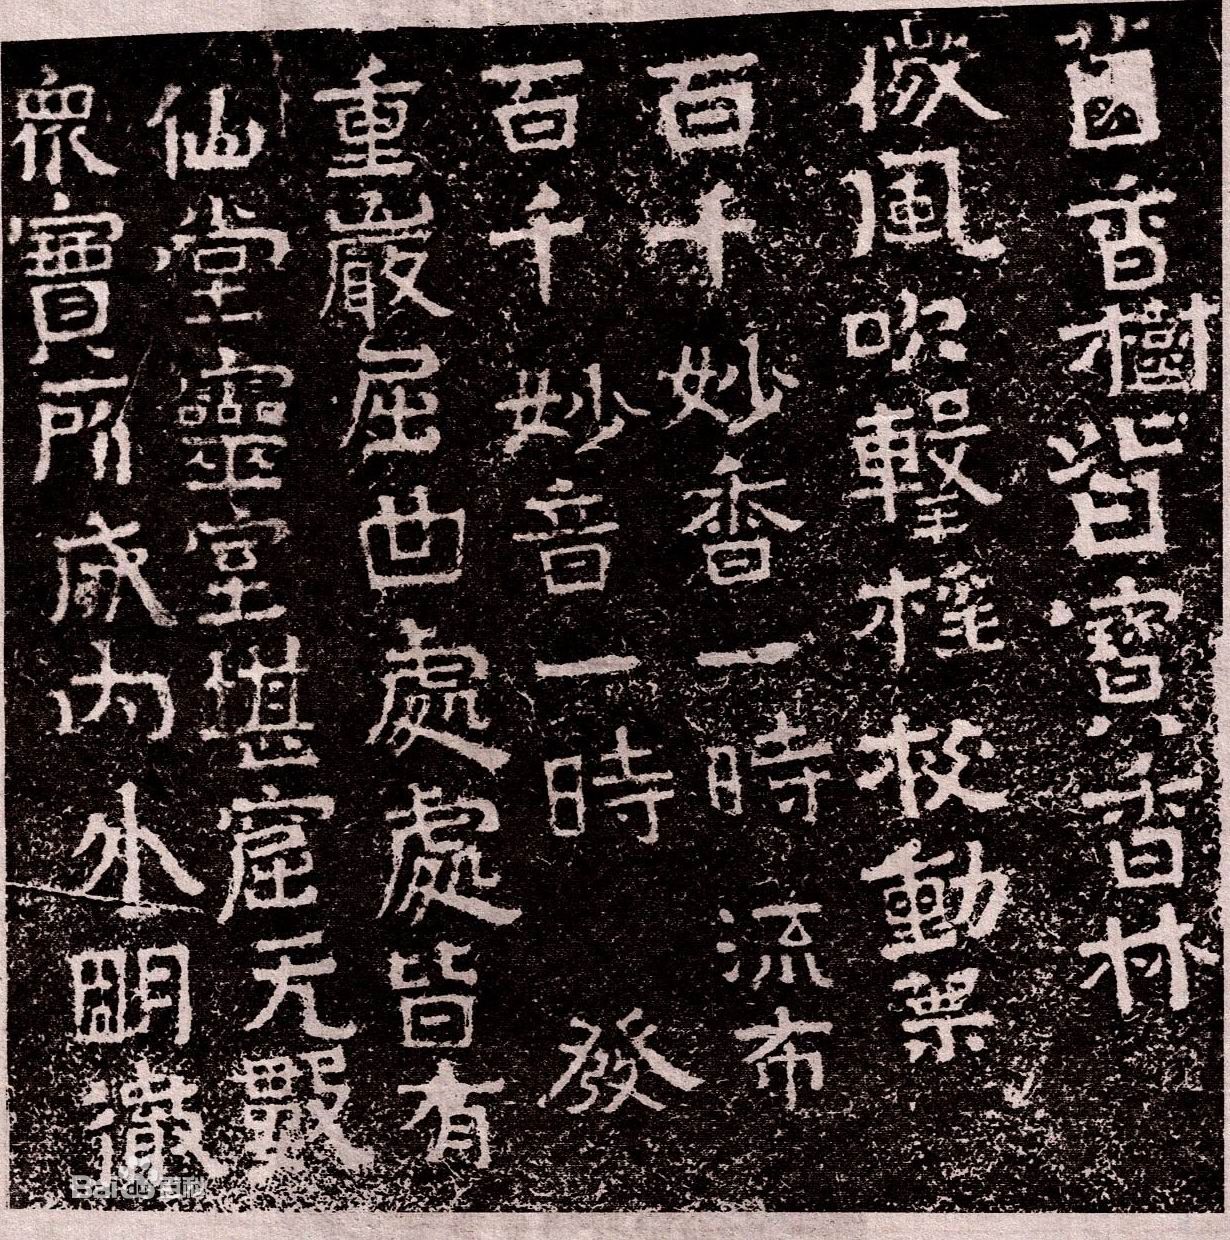 首香樹皆寶香林
微風吹擊搖枝動葉
百千妙香一時流布
百千妙音一時發
重巖屈曲處處皆有
仙堂靈室堪窟无數
眾寶所成內外明徹
Baidu百科